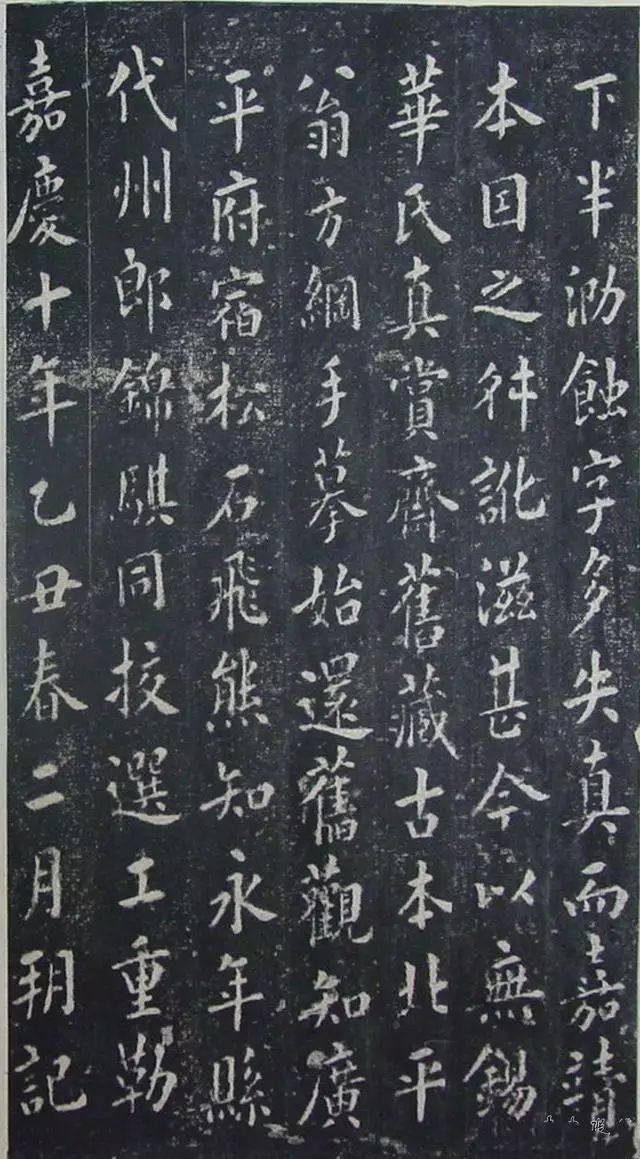 下半泐蝕字多失真而嘉靖
本因之舛訛滋甚今以無錫
華氏真賞齋舊藏古本北平
翁方綱手摹始還舊觀知廣
平府宿松石飛熊知永年縣
代州郎錦騏同挍選工重勒
嘉慶十年乙丑春二月朔記